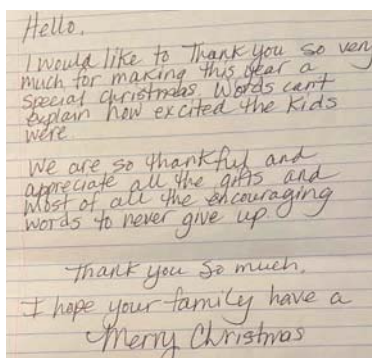 Hello,
I would like to Thank you so very
much for making this year a
special christmas. Words can't
explain how excited the kids
were.
We are so thankful and
appreciate all the gifts and
most of all the encouraging
words to never give up.
Thank you so much.
I hope your family have a
Merry Christmas